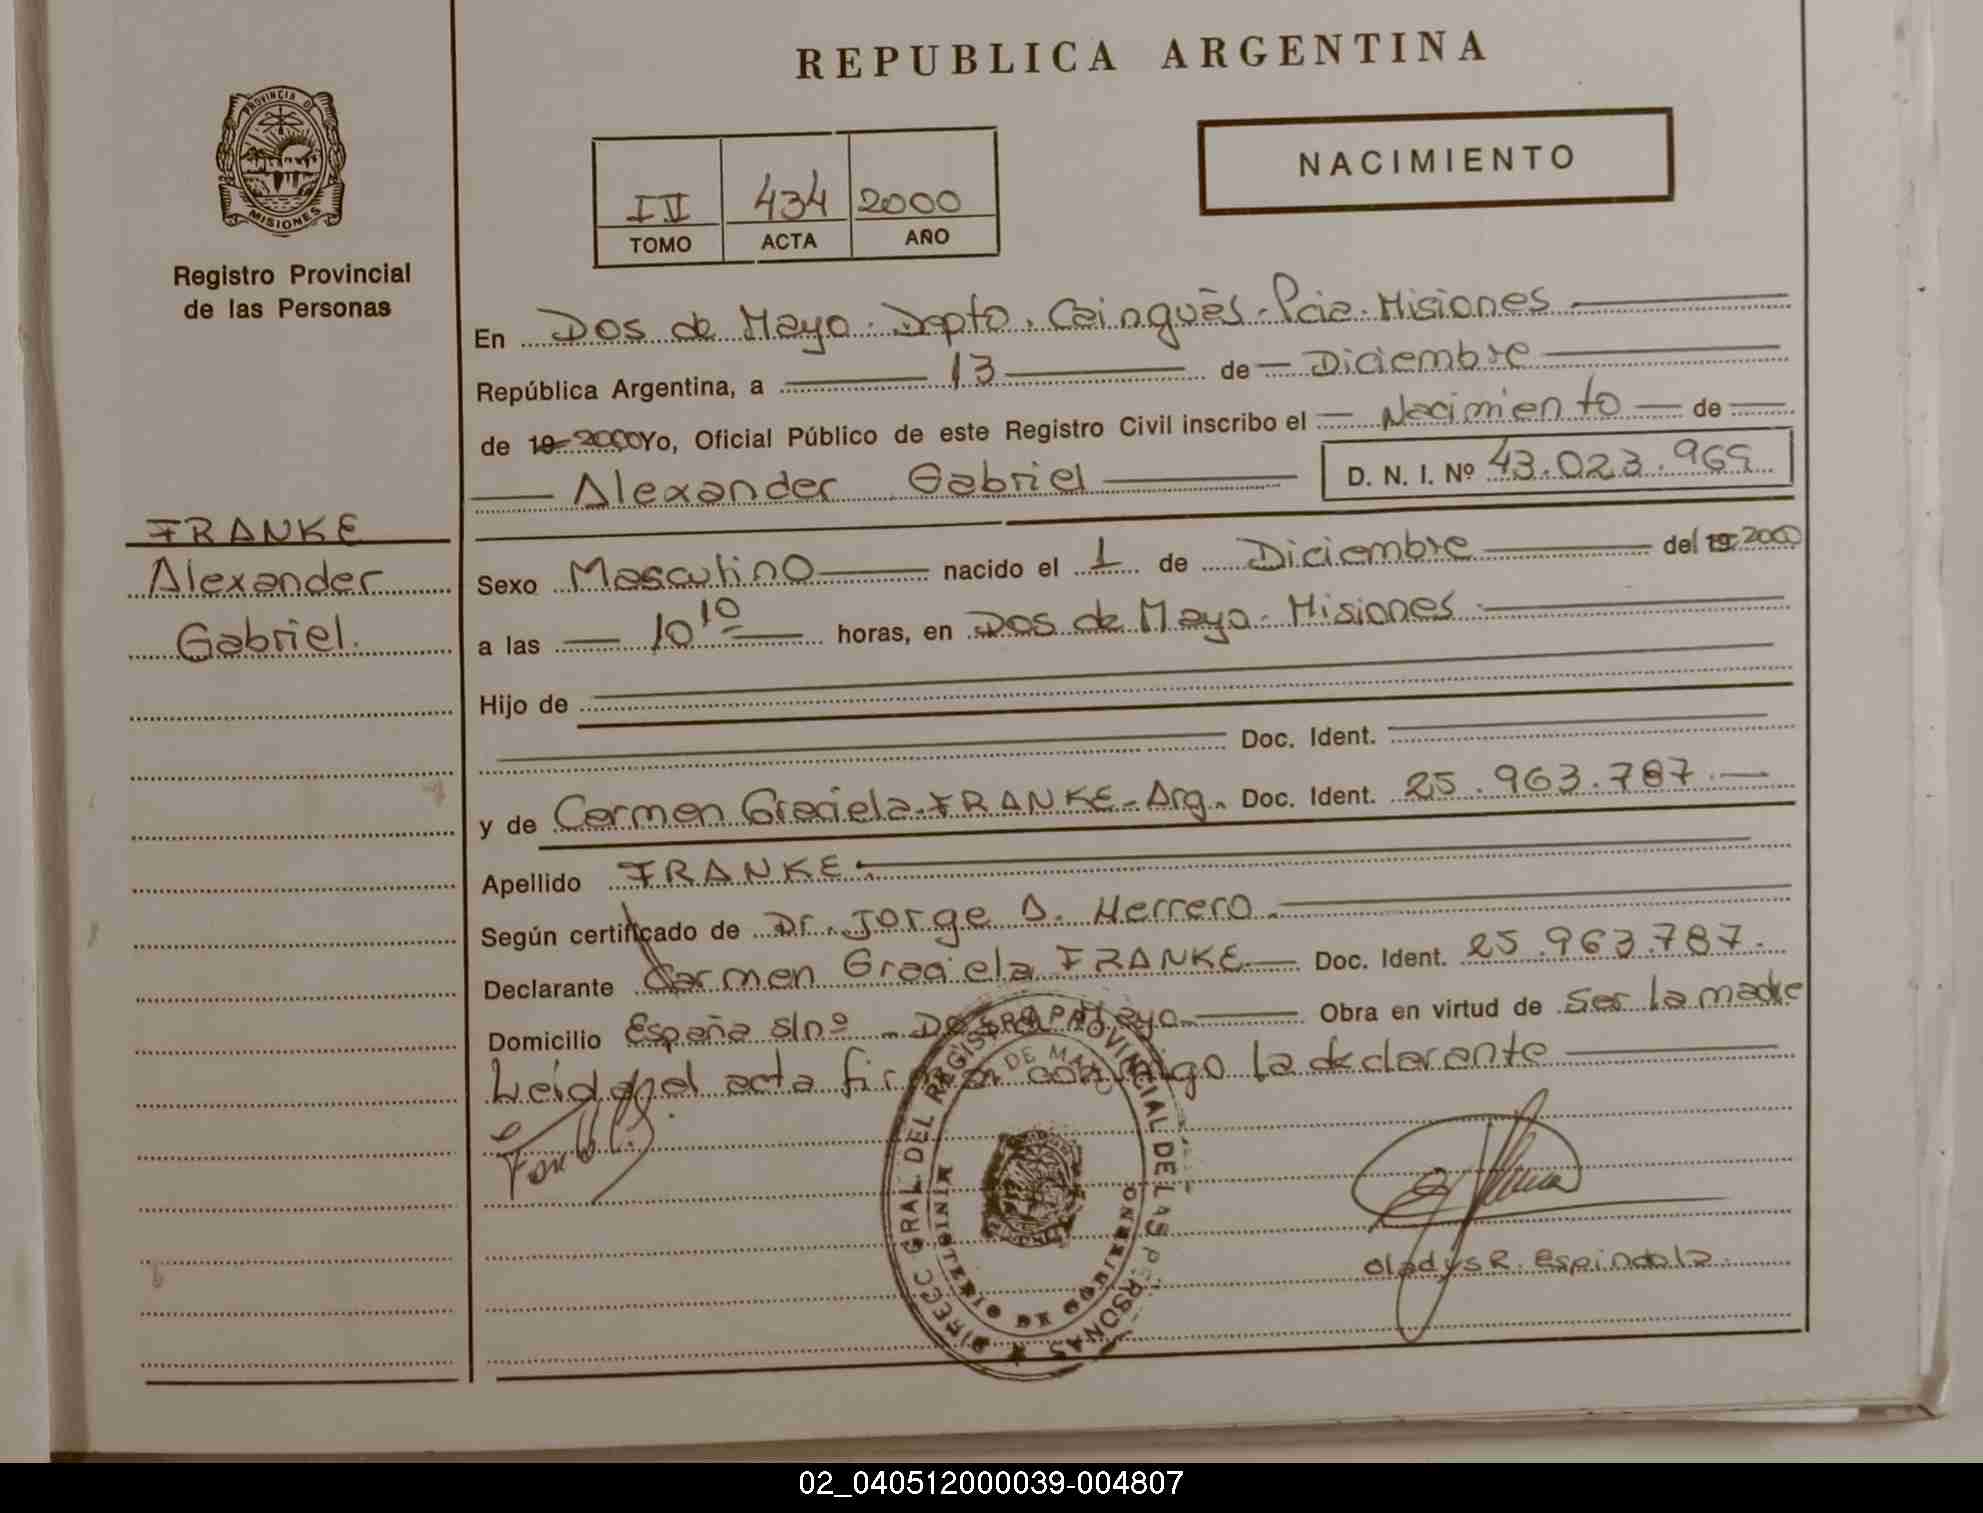 REPUBLICA ARGENTINA
PROVINCIA DE
MISIONES
Registro Provincial
de las Personas
NACIMIENTO
IV 434 2000
TOMO ACTA AÑO
En Dos de Mayo. Depto. Cainguás. Pcia. Misiones
República Argentina, a 13 de Diciembre
de 19 2000 Yo, Oficial Público de este Registro Civil inscribo el Nacimiento de
Alexander Gabriel D. N. I. Nº 43.023.969
FRANKE
Alexander
Gabriel.
Sexo Masculino nacido el 1 de Diciembre del 19 2000
a las 10 10 horas, en Dos de Mayo. Misiones
Hijo de
Doc. Ident.
y de Carmen Graciela FRANKE - Arg. Doc. Ident. 25.963.787
Apellido FRANKE
Según certificado de Dr. Jorge D. Herrero
Declarante Carmen Graciela FRANKE Doc. Ident. 25.963.787.
Domicilio España s/nº - Dos de Mayo Obra en virtud de ser la madre
Leida el acta firma conmigo la declarante
DIRECC GRAL DEL REGISTRO PROVINCIAL DE LAS PERSONAS
MINISTERIO DE GOBIERNO
DE MAYO
Gladys R. Espindola
02_040512000039-004807